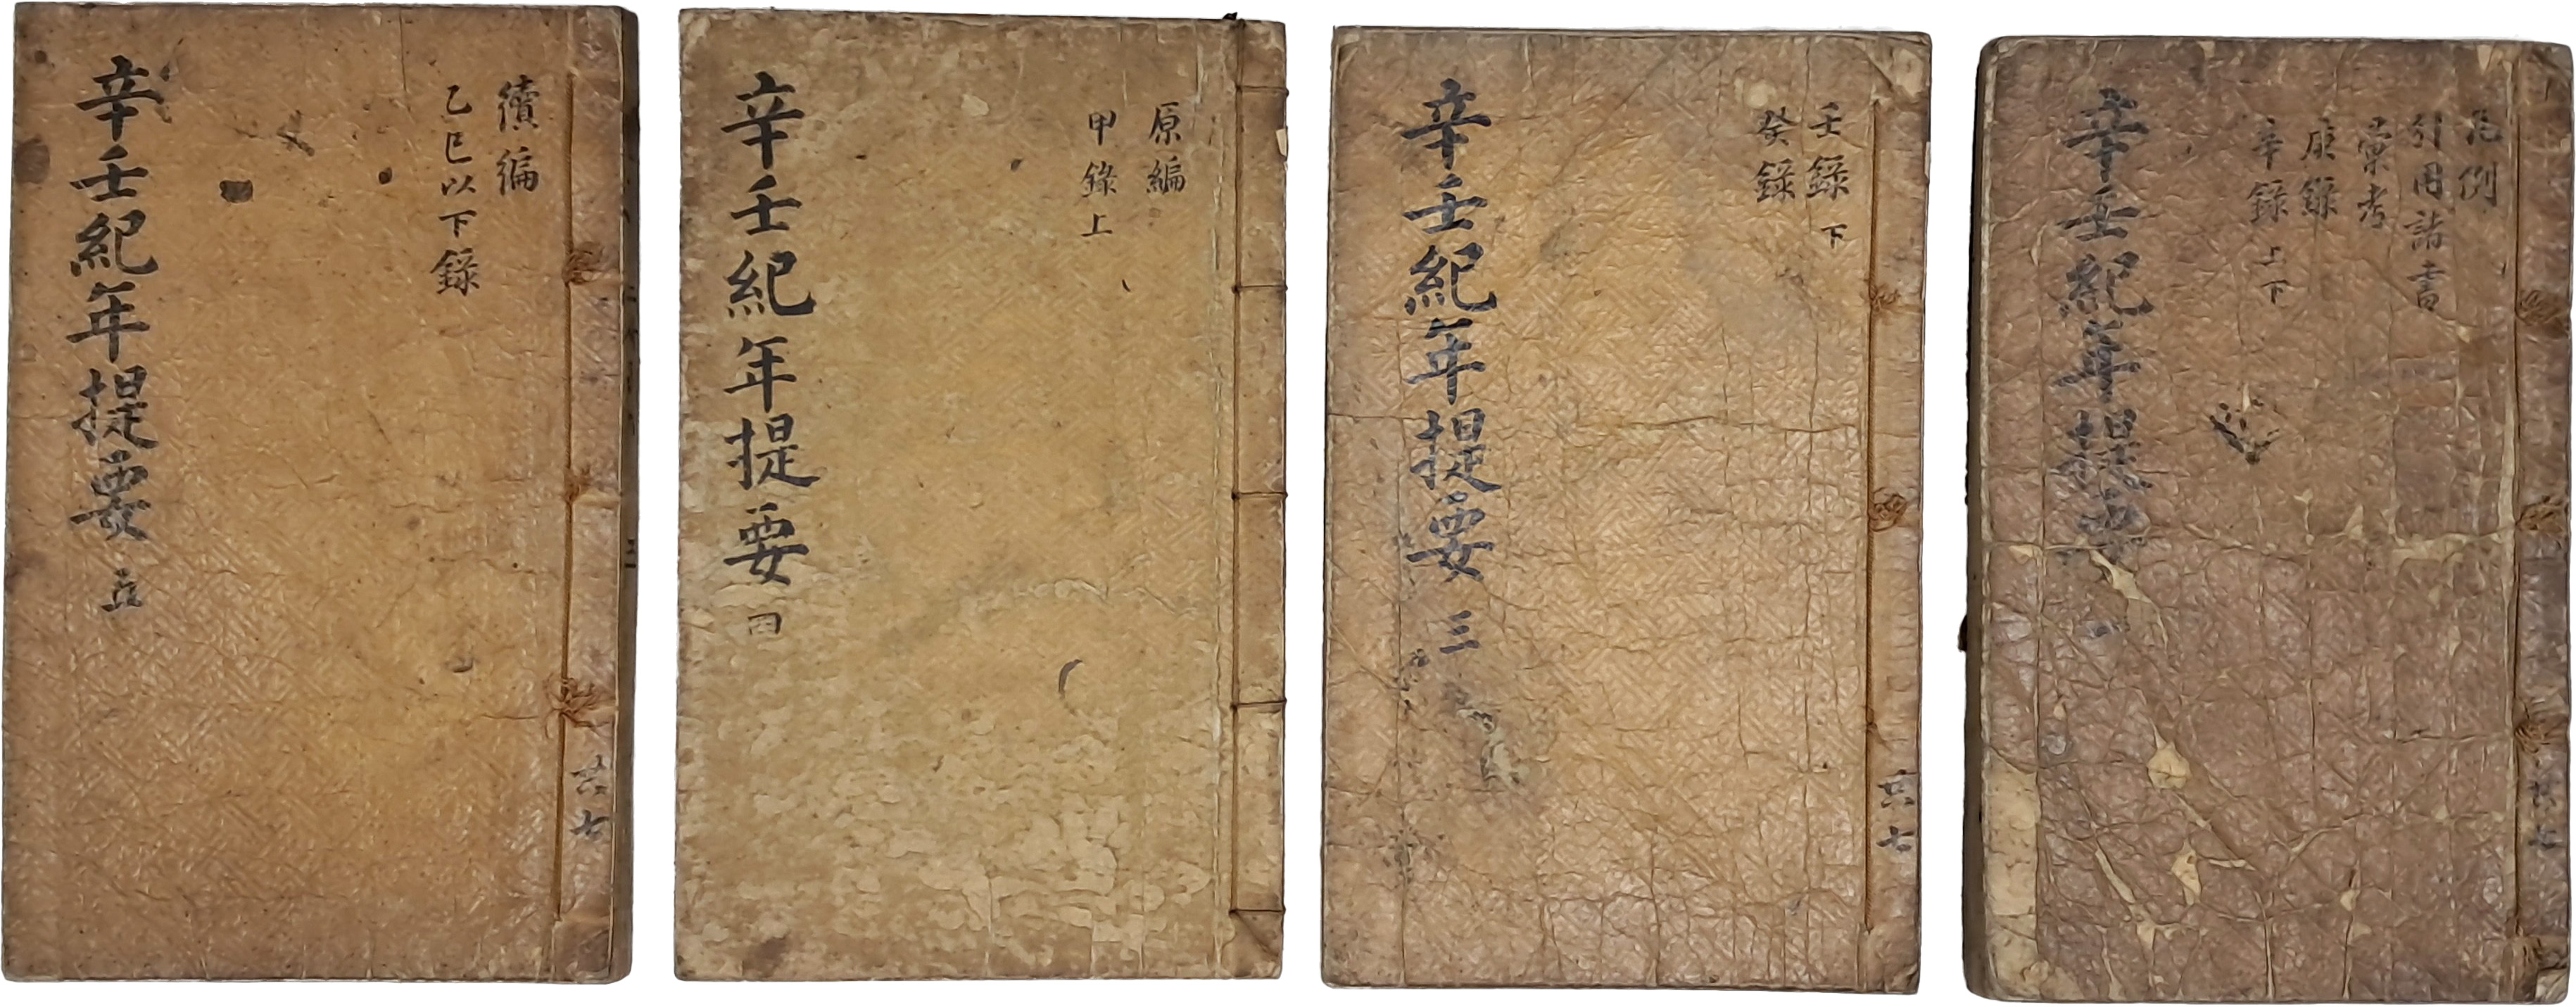 凡例
引用諸書
彙考
庚錄
辛錄 上下
辛壬紀年提要 一
共七
壬錄 下
癸錄
辛壬紀年提要 三
共七
原編
甲錄 上
辛壬紀年提要 四
續編
乙巳以下錄
辛壬紀年提要 五
共七